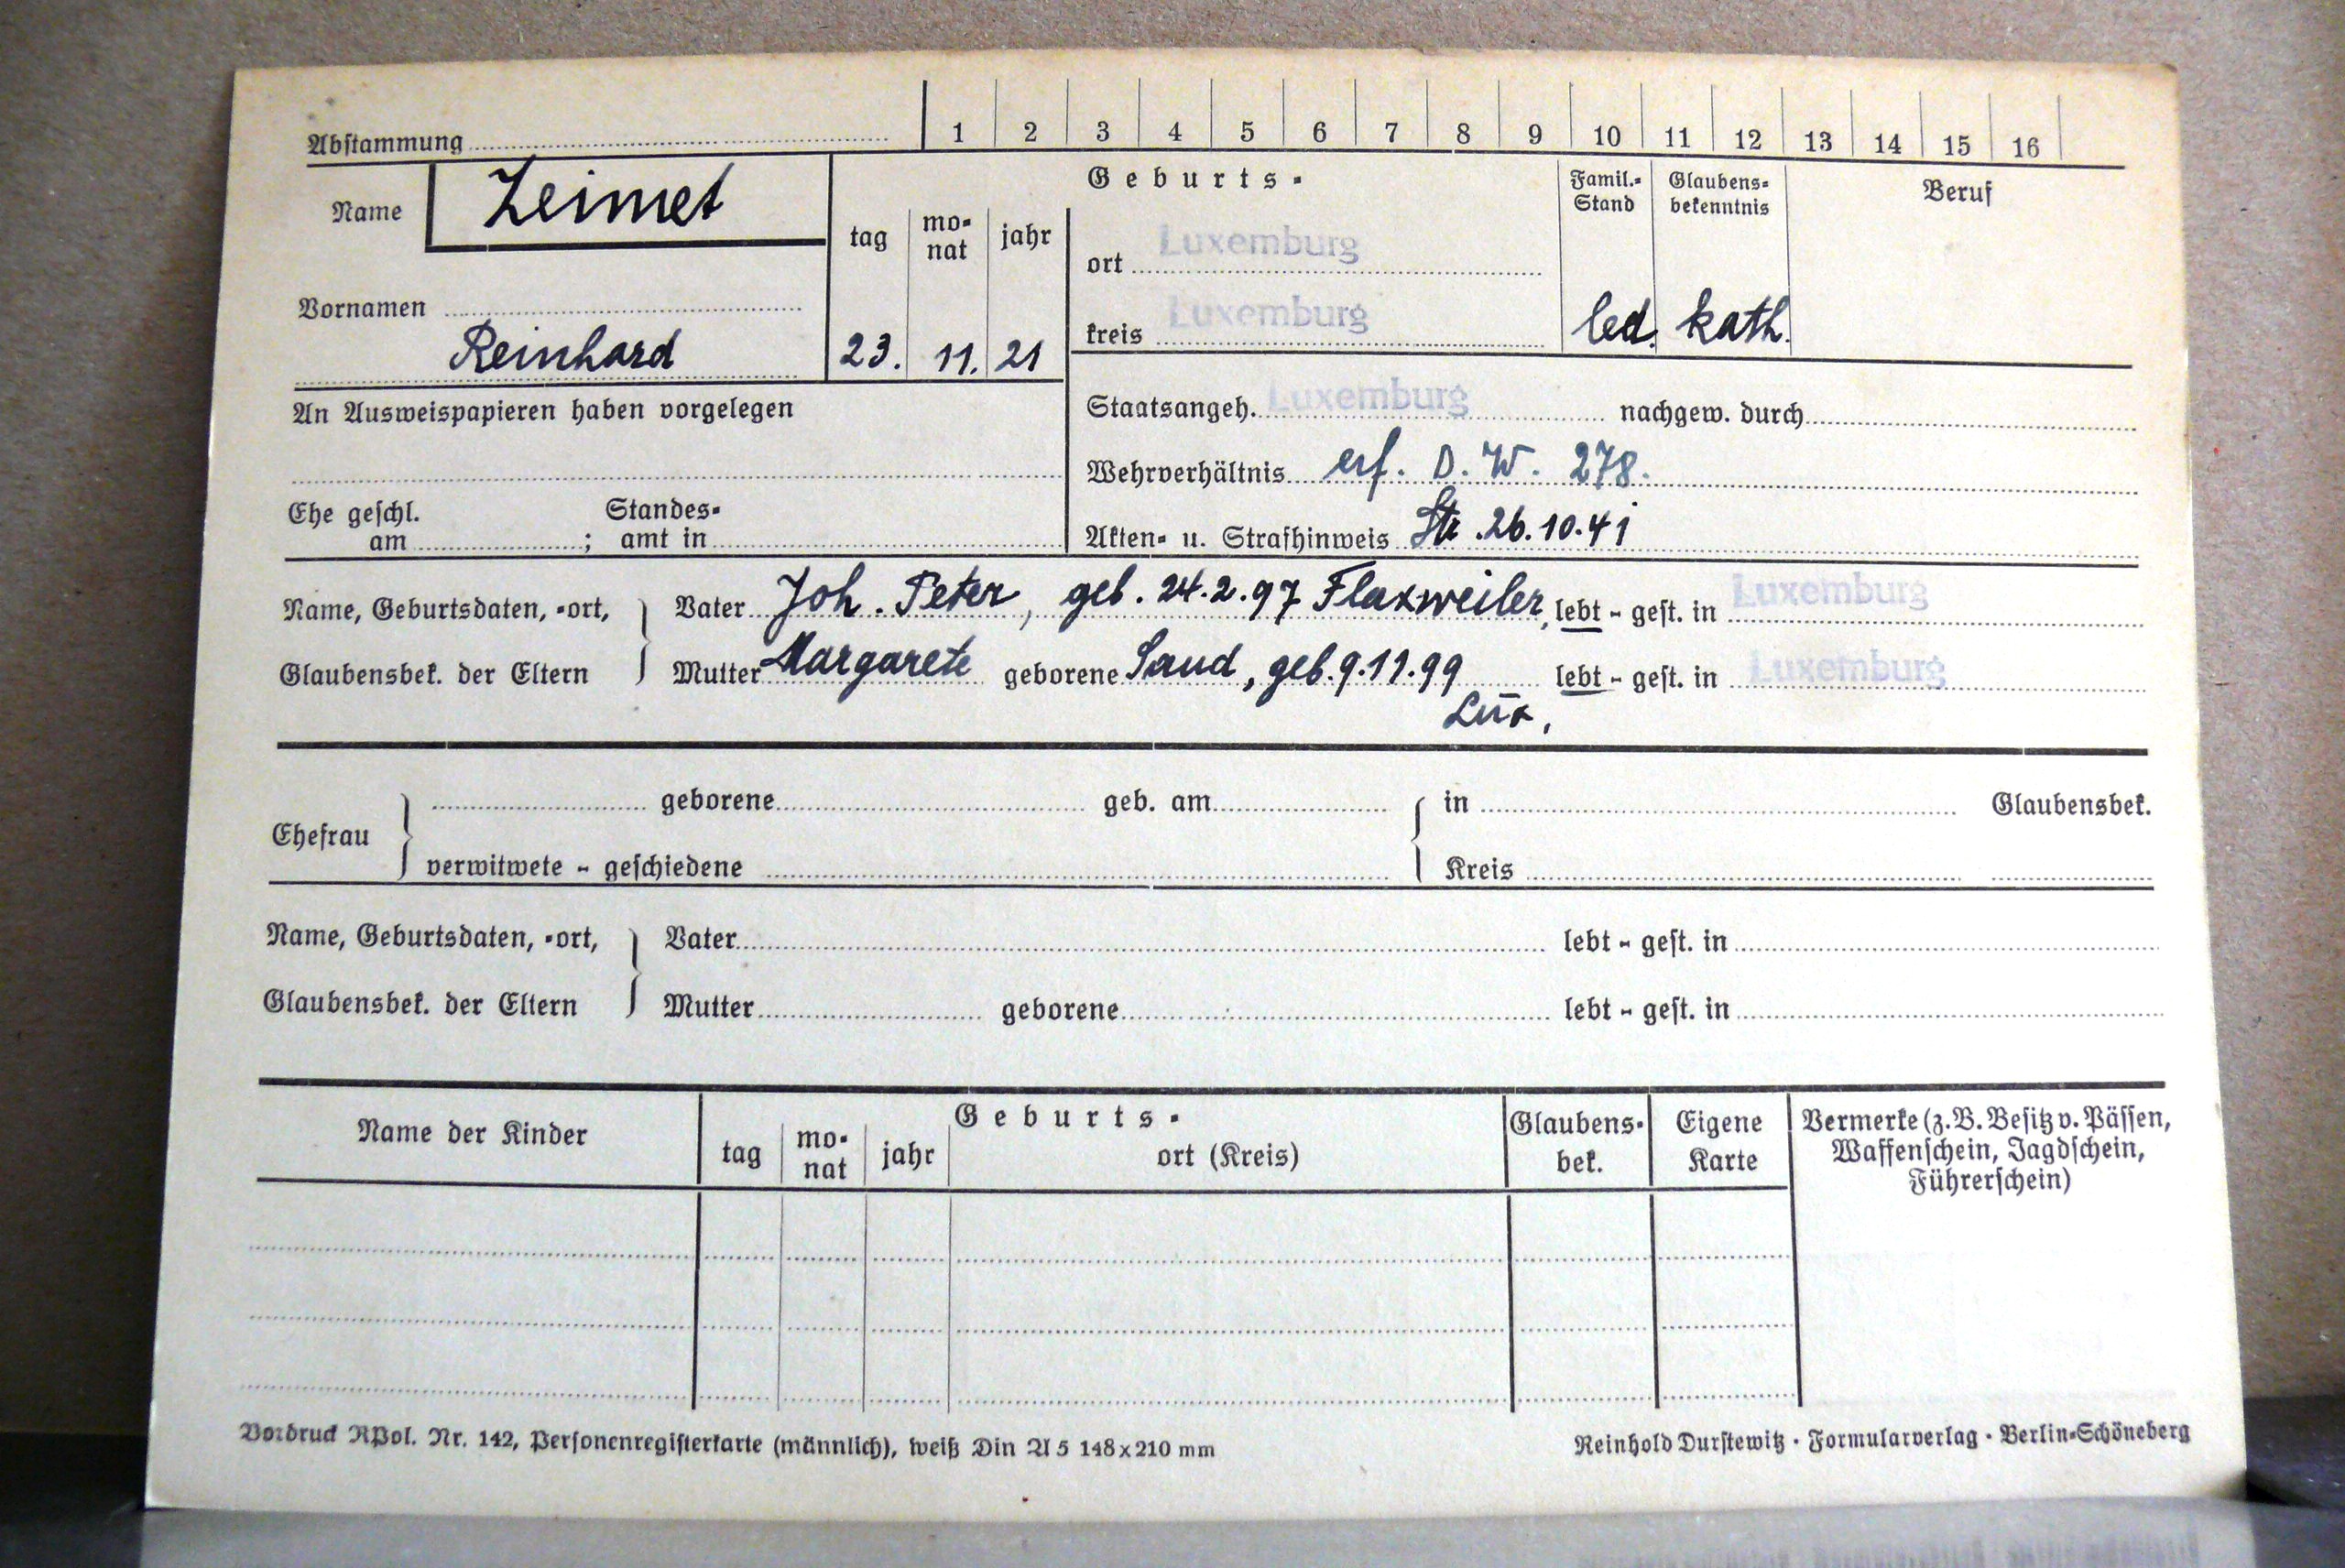 Abstammung 1 2 3 4 5 6 7 8 9 10 11 12 13 14 15 16
Name Zeimet
Geburts-
tag monat jahr
ort Luxemburg
Famil.-Stand
Glaubens-bekenntnis
Beruf
Vornamen
Reinhard 23. 11. 21
kreis Luxemburg
led. kath.
An Ausweispapieren haben vorgelegen
Staatsangeh. Luxemburg nachgew. durch
Wehrverhältnis erf. D. W. 278.
Ehe geschl. am ; Standes-amt in
Akten- u. Strafhinweis Str. 26.10.41
Name, Geburtsdaten, -ort, Vater Joh. Peter, geb. 24.2.97 Flaxweiler, lebt - gest. in Luxemburg
Glaubensbek. der Eltern Mutter Margarete geborene Sand, geb. 9.11.99 lebt - gest. in Luxemburg
Lux,
Ehefrau
geborene geb. am in Glaubensbek.
verwitwete - geschiedene Kreis
Name, Geburtsdaten, -ort, Vater lebt - gest. in
Glaubensbek. der Eltern Mutter geborene lebt - gest. in
Name der Kinder
Geburts-
tag monat jahr ort (Kreis)
Glaubens-bek.
Eigene Karte
Vermerke (z. B. Besitz v. Pässen,
Waffenschein, Jagdschein,
Führerschein)
Vordruck RPol. Nr. 142, Personenregisterkarte (männlich), weiß Din A 5 148x210 mm
Reinhold Durstewitz · Formularverlag · Berlin-Schöneberg